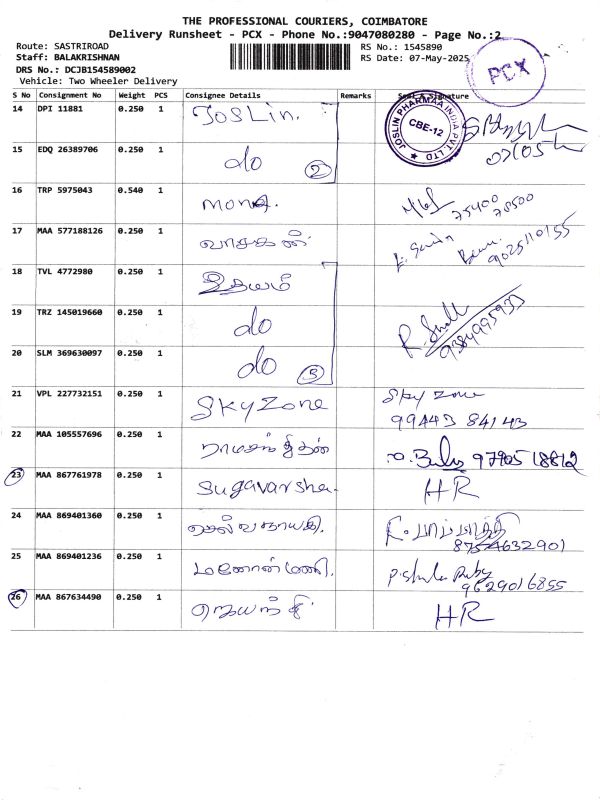 THE PROFESSIONAL COURIERS, COIMBATORE
Delivery Runsheet - PCX - Phone No.:9047080280 - Page No.:2
Route: SASTRIROAD
Staff: BALAKRISHNAN
DRS No.: DCJB154589002
Vehicle: Two Wheeler Delivery
RS No.: 1545890
RS Date: 07-May-2025
PCX
S No Consignment No Weight PCS Consignee Details Remarks Seal & Signature
14 DPI 11881 0.250 1 Joslin.
JOSLIN PHARMAA INDIA PVT. LTD
CBE-12
15 EDQ 26389706 0.250 1 do 2
16 TRP 5975043 0.540 1 mona. 75400 78500
17 MAA 577188126 0.250 1 வாசகனி. 9025110155
18 TVL 4772980 0.250 1 உதயம்
19 TRZ 145019660 0.250 1 do 9384995933
20 SLM 369630097 0.250 1 do 3
21 VPL 227732151 0.250 1 Sky Zone Sky Zone
99443 84143
22 MAA 105557696 0.250 1 ராமசந்திரன் 9790518812
23 MAA 867761978 0.250 1 Sugavarsha. HR
24 MAA 869401360 0.250 1 செல்வநாயகி.
8754632901
25 MAA 869401236 0.250 1 மனோன்மணி.
9629016855
26 MAA 867634490 0.250 1 ஜெயந்தி. HR